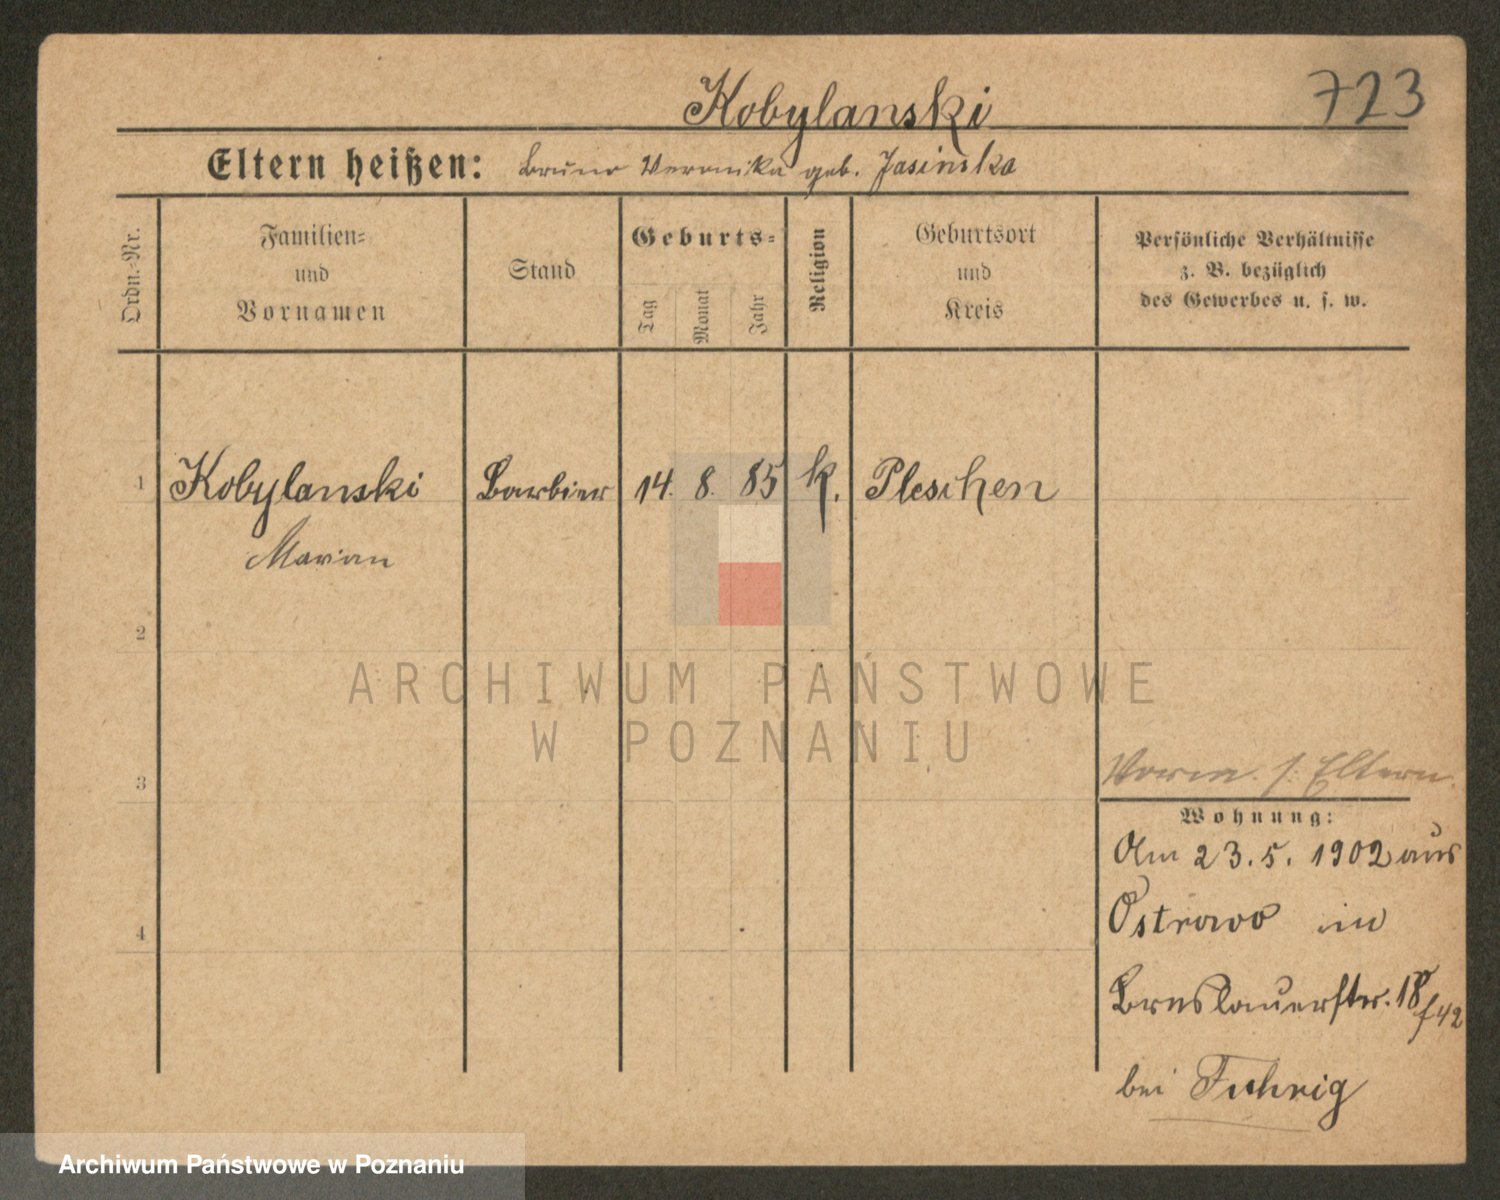 Kobylanski
723
Eltern heißen: Bruno Veronika geb. Jasinska
Ordn.-Nr.
Familien-
und
Vornamen
Stand
Geburts-
Tag
Monat
Jahr
Religion
Geburtsort
und
Kreis
Persönliche Verhältnisse
z. B. bezüglich
des Gewerbes u. s. w.
1 Kobylanski Barbier 14. 8. 85 k. Pleschen
Marian
2
3
4
Vorm. s. Eltern.
Wohnung:
Am 23.5. 1902 aus
Ostrowo in
Breslauerstr. 18
bei Fuhrig
ARCHIWUM PAŃSTWOWE
W POZNANIU
Archiwum Państwowe w Poznaniu